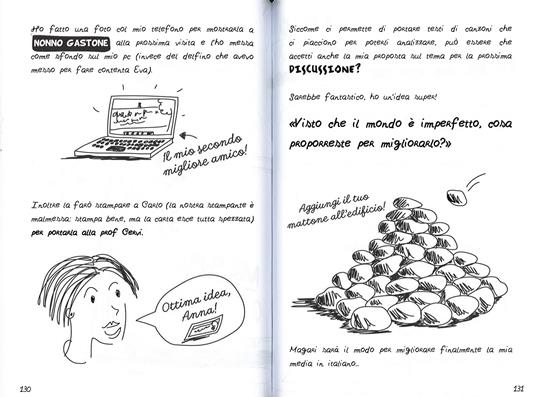 Ho fatto una foto col mio telefono per mostrarla a
NONNO GASTONE alla prossima visita e l'ho messa
come sfondo sul mio pc (invece del delfino che avevo
messo per fare contenta Eva).
Il mio secondo
migliore amico!
Inoltre la farò stampare a Carlo (la nostra stampante è
malmessa: stampa bene, ma la carta esce tutta spezzata)
per portarla alla prof Cervi.
Ottima idea,
Anna!
130
Siccome ci permette di portare testi di canzoni che
ci piacciono per poterli analizzare, può essere che
accetti anche la mia proposta sul tema per la prossima
DISCUSSIONE?
Sarebbe fantastico, ho un'idea super!
«Visto che il mondo è imperfetto, cosa
proporreste per migliorarlo?»
Aggiungi il tuo
mattone all'edificio!
Magari sarà il modo per migliorare finalmente la mia
media in italiano..
131